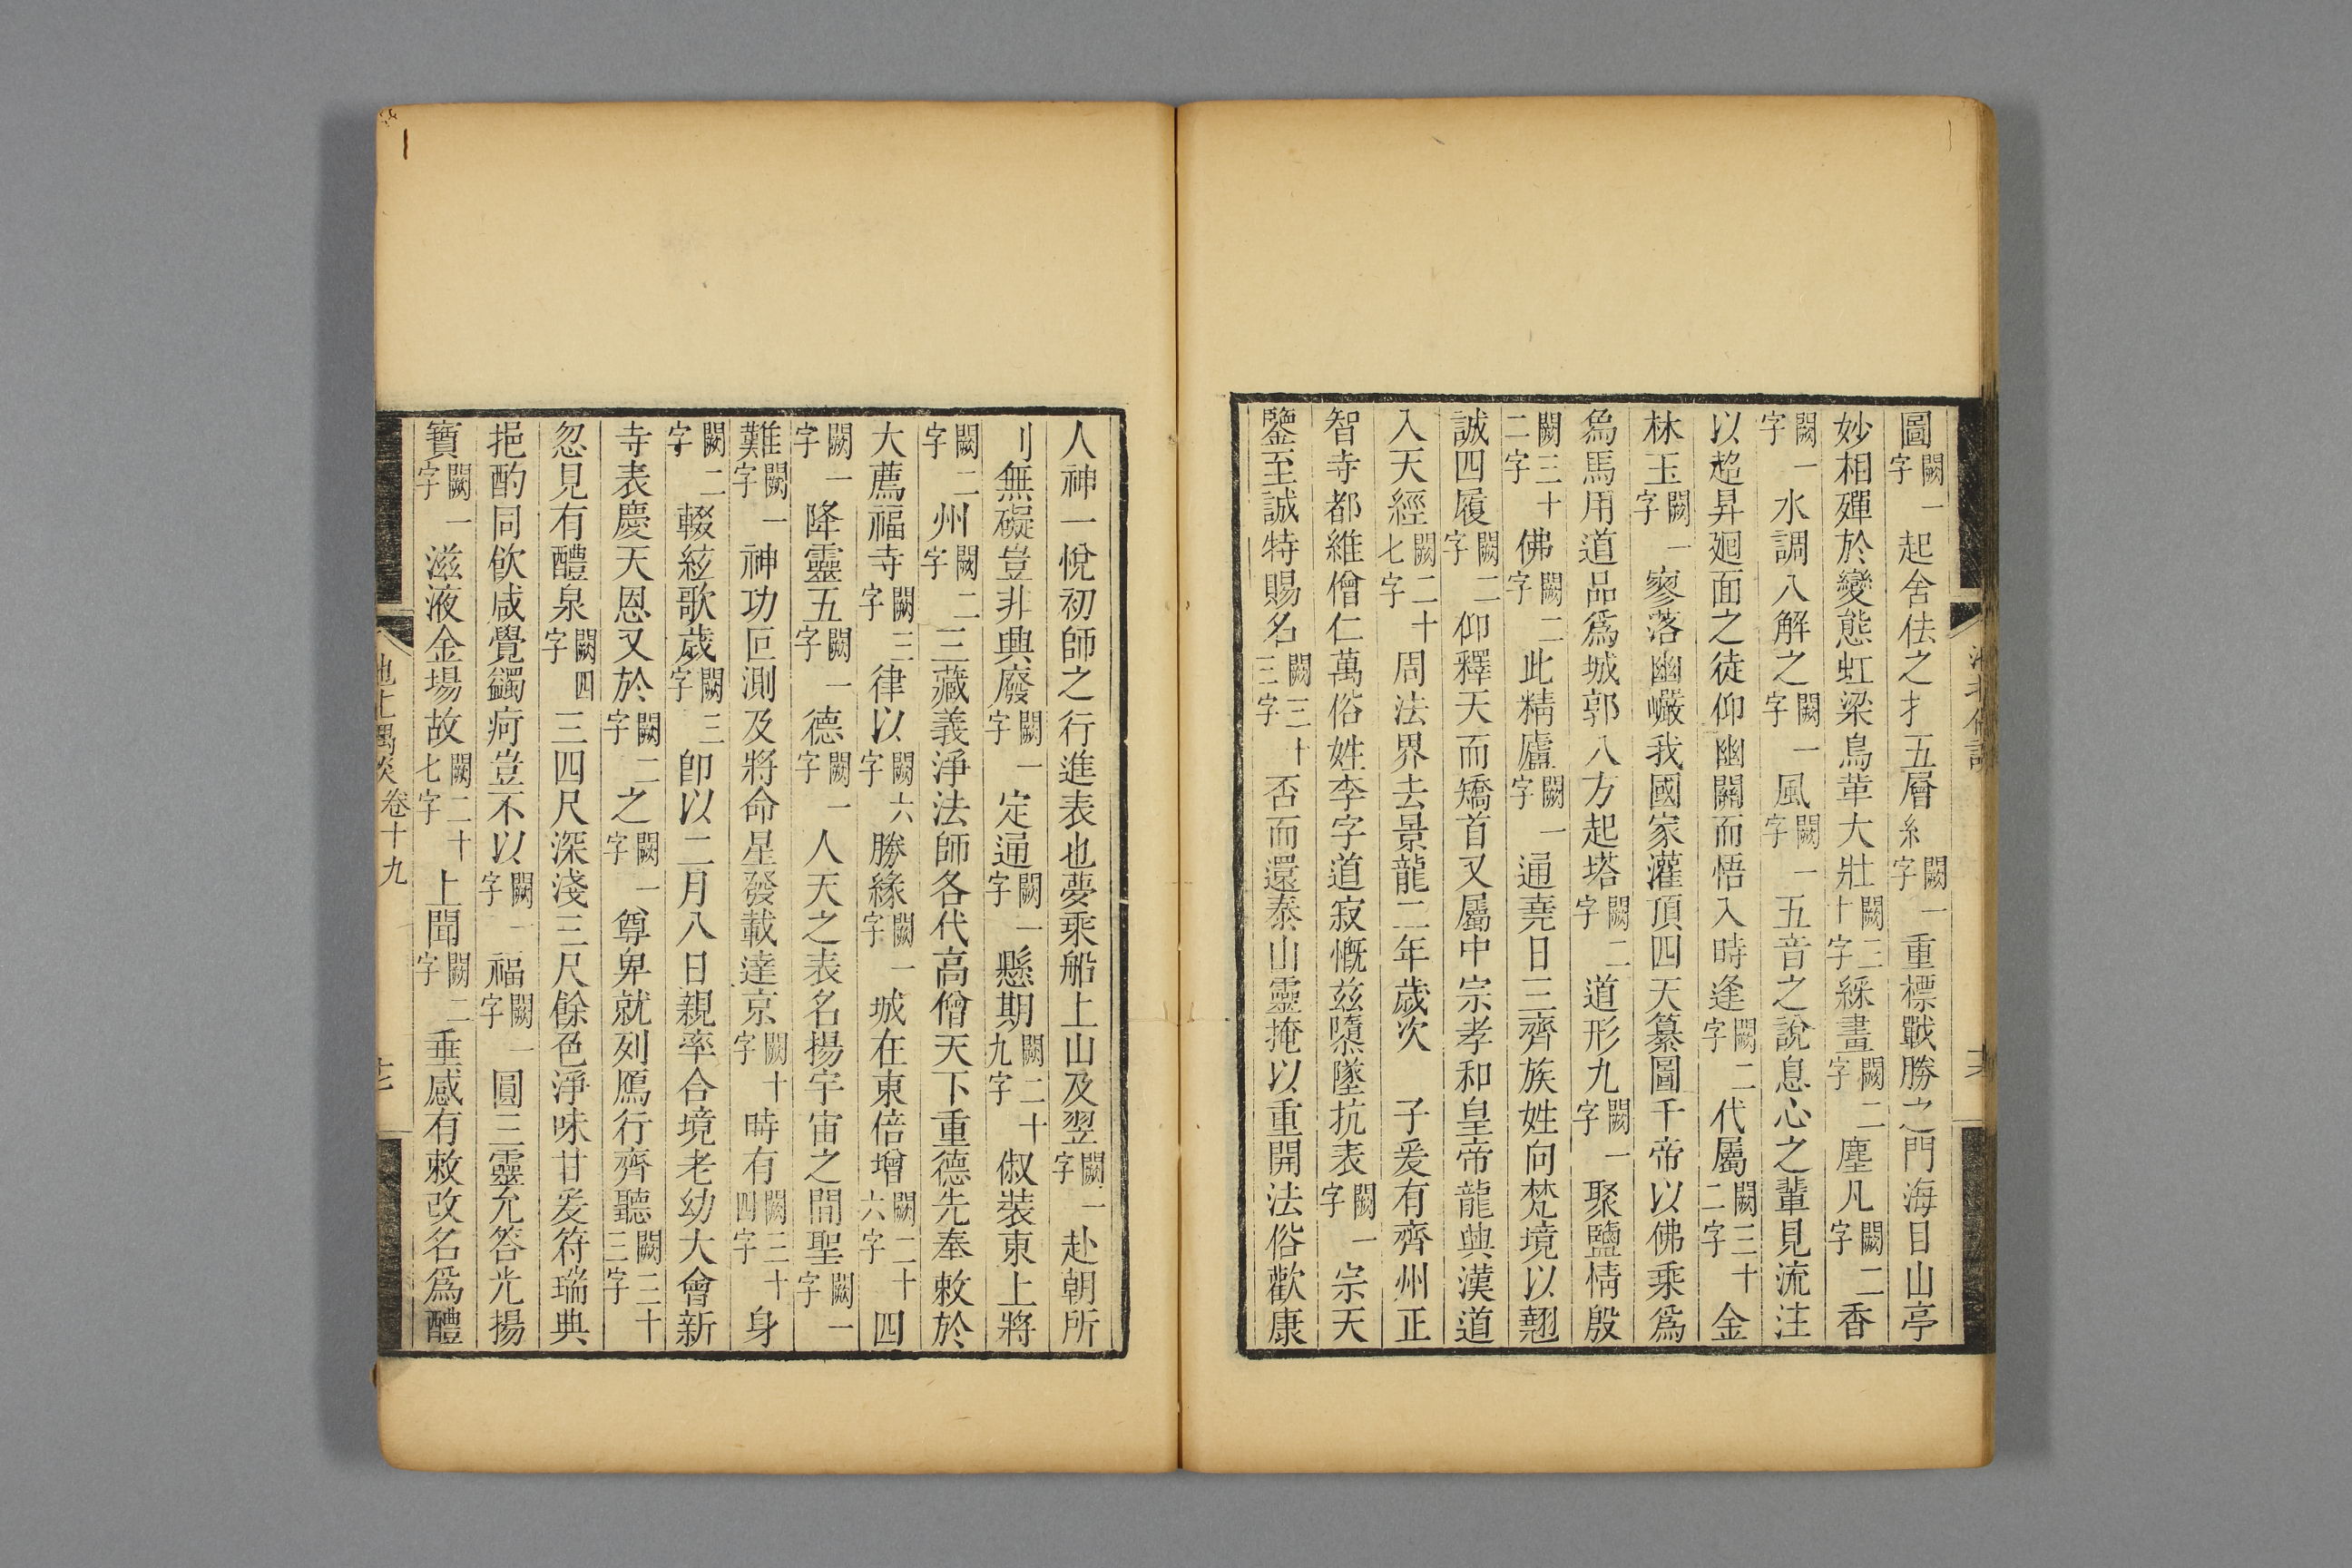 圖闕一字起舍佉之扌五層糹闕一字重標戰勝之門海日山亭
妙相殫於變態虹梁鳥革大壯闕三十二字綵畫闕二字塵凡闕二字香
闕一字水調八解之闕一字風闕一字五音之說息心之輩見流注
以超昇廻面之徒仰幽關而悟入時逢闕二字代屬闕三十二字金
林玉闕一字寥落幽巖我國家灌頂四天纂圖千帝以佛乘爲
爲馬用道品爲城郭八方起塔闕二字道形九闕一字聚鹽情殷
闕三十二字佛闕二字此精廬闕一字通堯日三齊族姓向梵境以翹
誠四履闕二字仰釋天而矯首又屬中宗孝和皇帝龍興漢道
入天經闕二十七字周法界去景龍二年歲次　子爰有齊州正
智寺都維僧仁萬俗姓李字道寂慨兹隳墜抗表闕一字宗天
鑒至誠特賜名闕三十三字否而還泰山靈掩以重開法俗歡康
人神一悅初師之行進表也夢乘船上山及翌闕一字赴朝所
刂無礙豈非興廢闕一字定通闕一字懸期闕二十九字俶裝東上將
闕二字州闕二字三藏義淨法師各代高僧天下重德先奉敕於
大薦福寺闕三字律以闕六字勝緣闕一字城在東倍增闕二十六字四
闕一字降靈五闕一字德闕一字人天之表名揚宇宙之間聖闕一字
難闕一字神功叵測及將命星發載達京闕十字時有闕三十四字身
闕二字輟絃歌歲闕三字卽以二月八日親率合境老幼大會新
寺表慶天恩又於闕二字之闕一字尊卑就列鴈行齊聽闕二十三字
忽見有醴泉闕四字三四尺深淺三尺餘色淨味甘爰符瑞典
挹酌同飮咸覺蠲痾豈不以闕一字福闕一字圓三靈允答光揚
寶闕一字滋液金場故闕二十七字上聞闕二字垂感有敕改名爲醴
卷十九